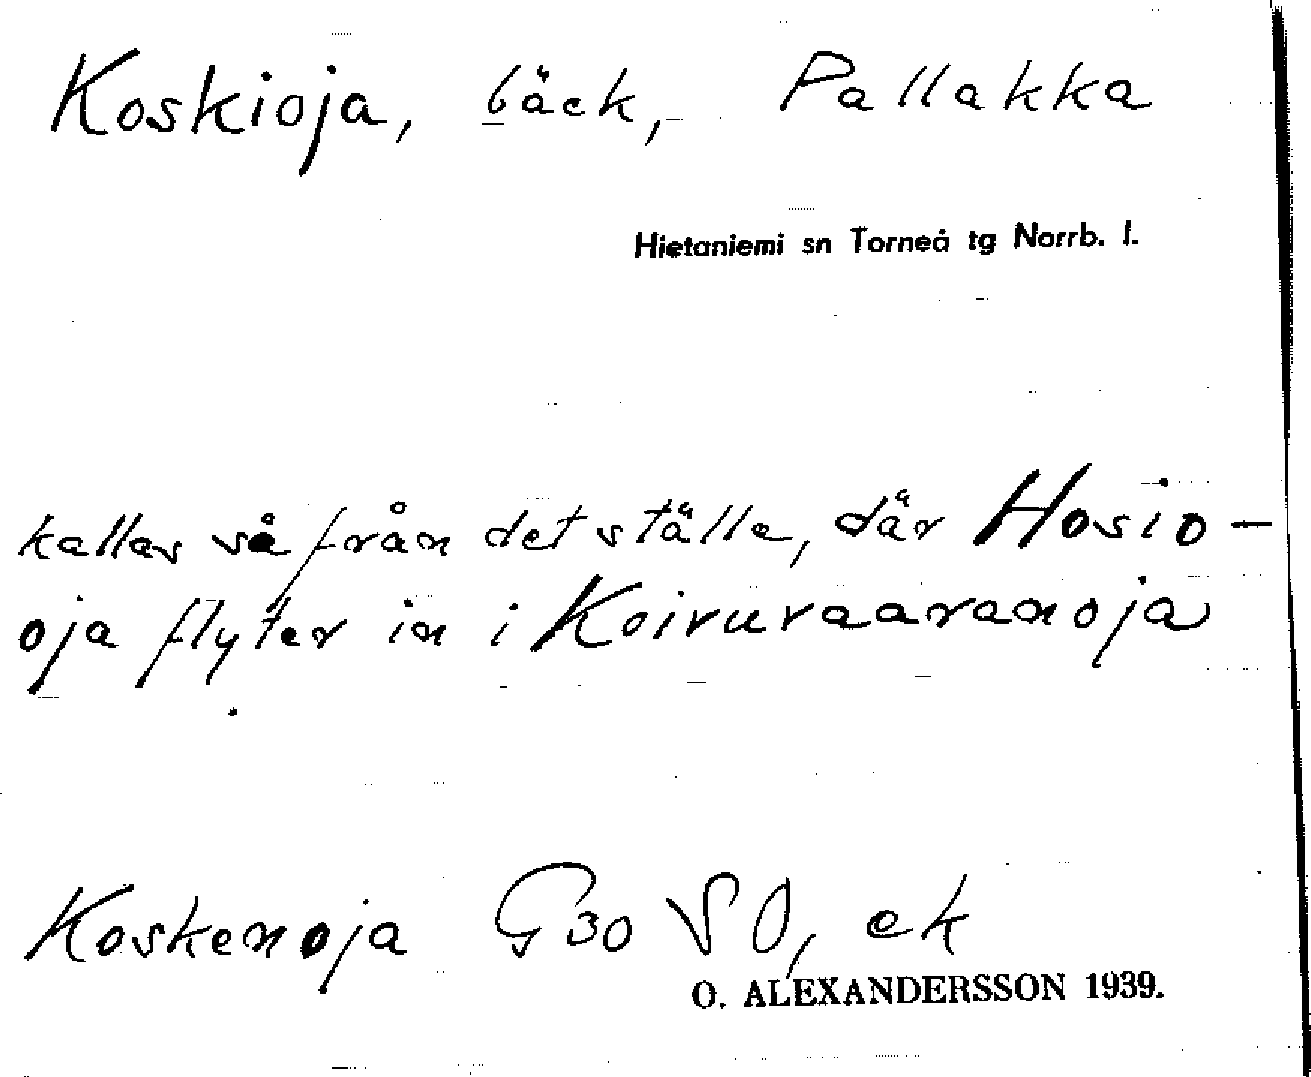 Koskioja, bäck, Pallakka
Hietaniemi sn Torneå tg Norrb. l.
kallas så från det ställe, där Hosio-
oja flyter in i Koivuvaaranoja
Koskenoja G30 SO, ek
O. ALEXANDERSSON 1939.